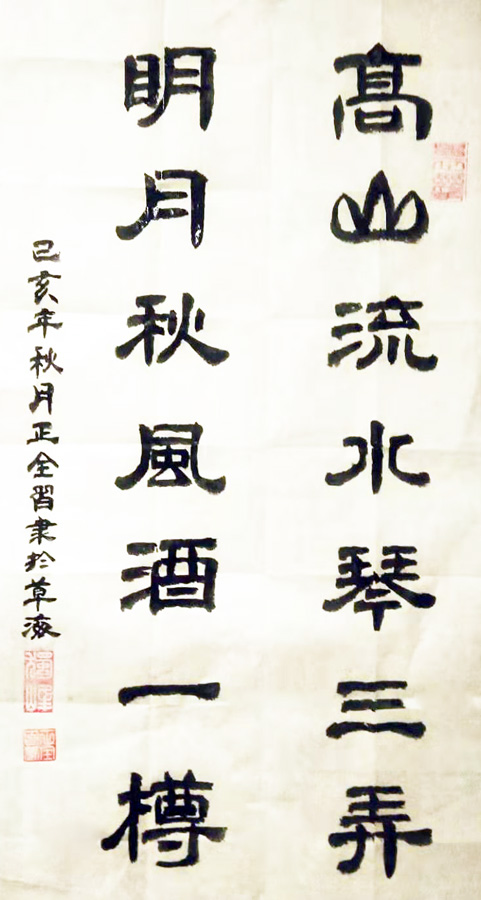 高山流水琴三弄
明月秋風酒一樽
己亥年秋月正全習隶於草海